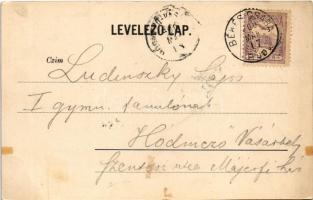 LEVELEZŐ-LAP.
BÉKÉSCSABA
Czim
Ludenszky Lajos
I gymn. tanulónak
Hodmező Vásárhely
Szentesi utca Májerfi ház